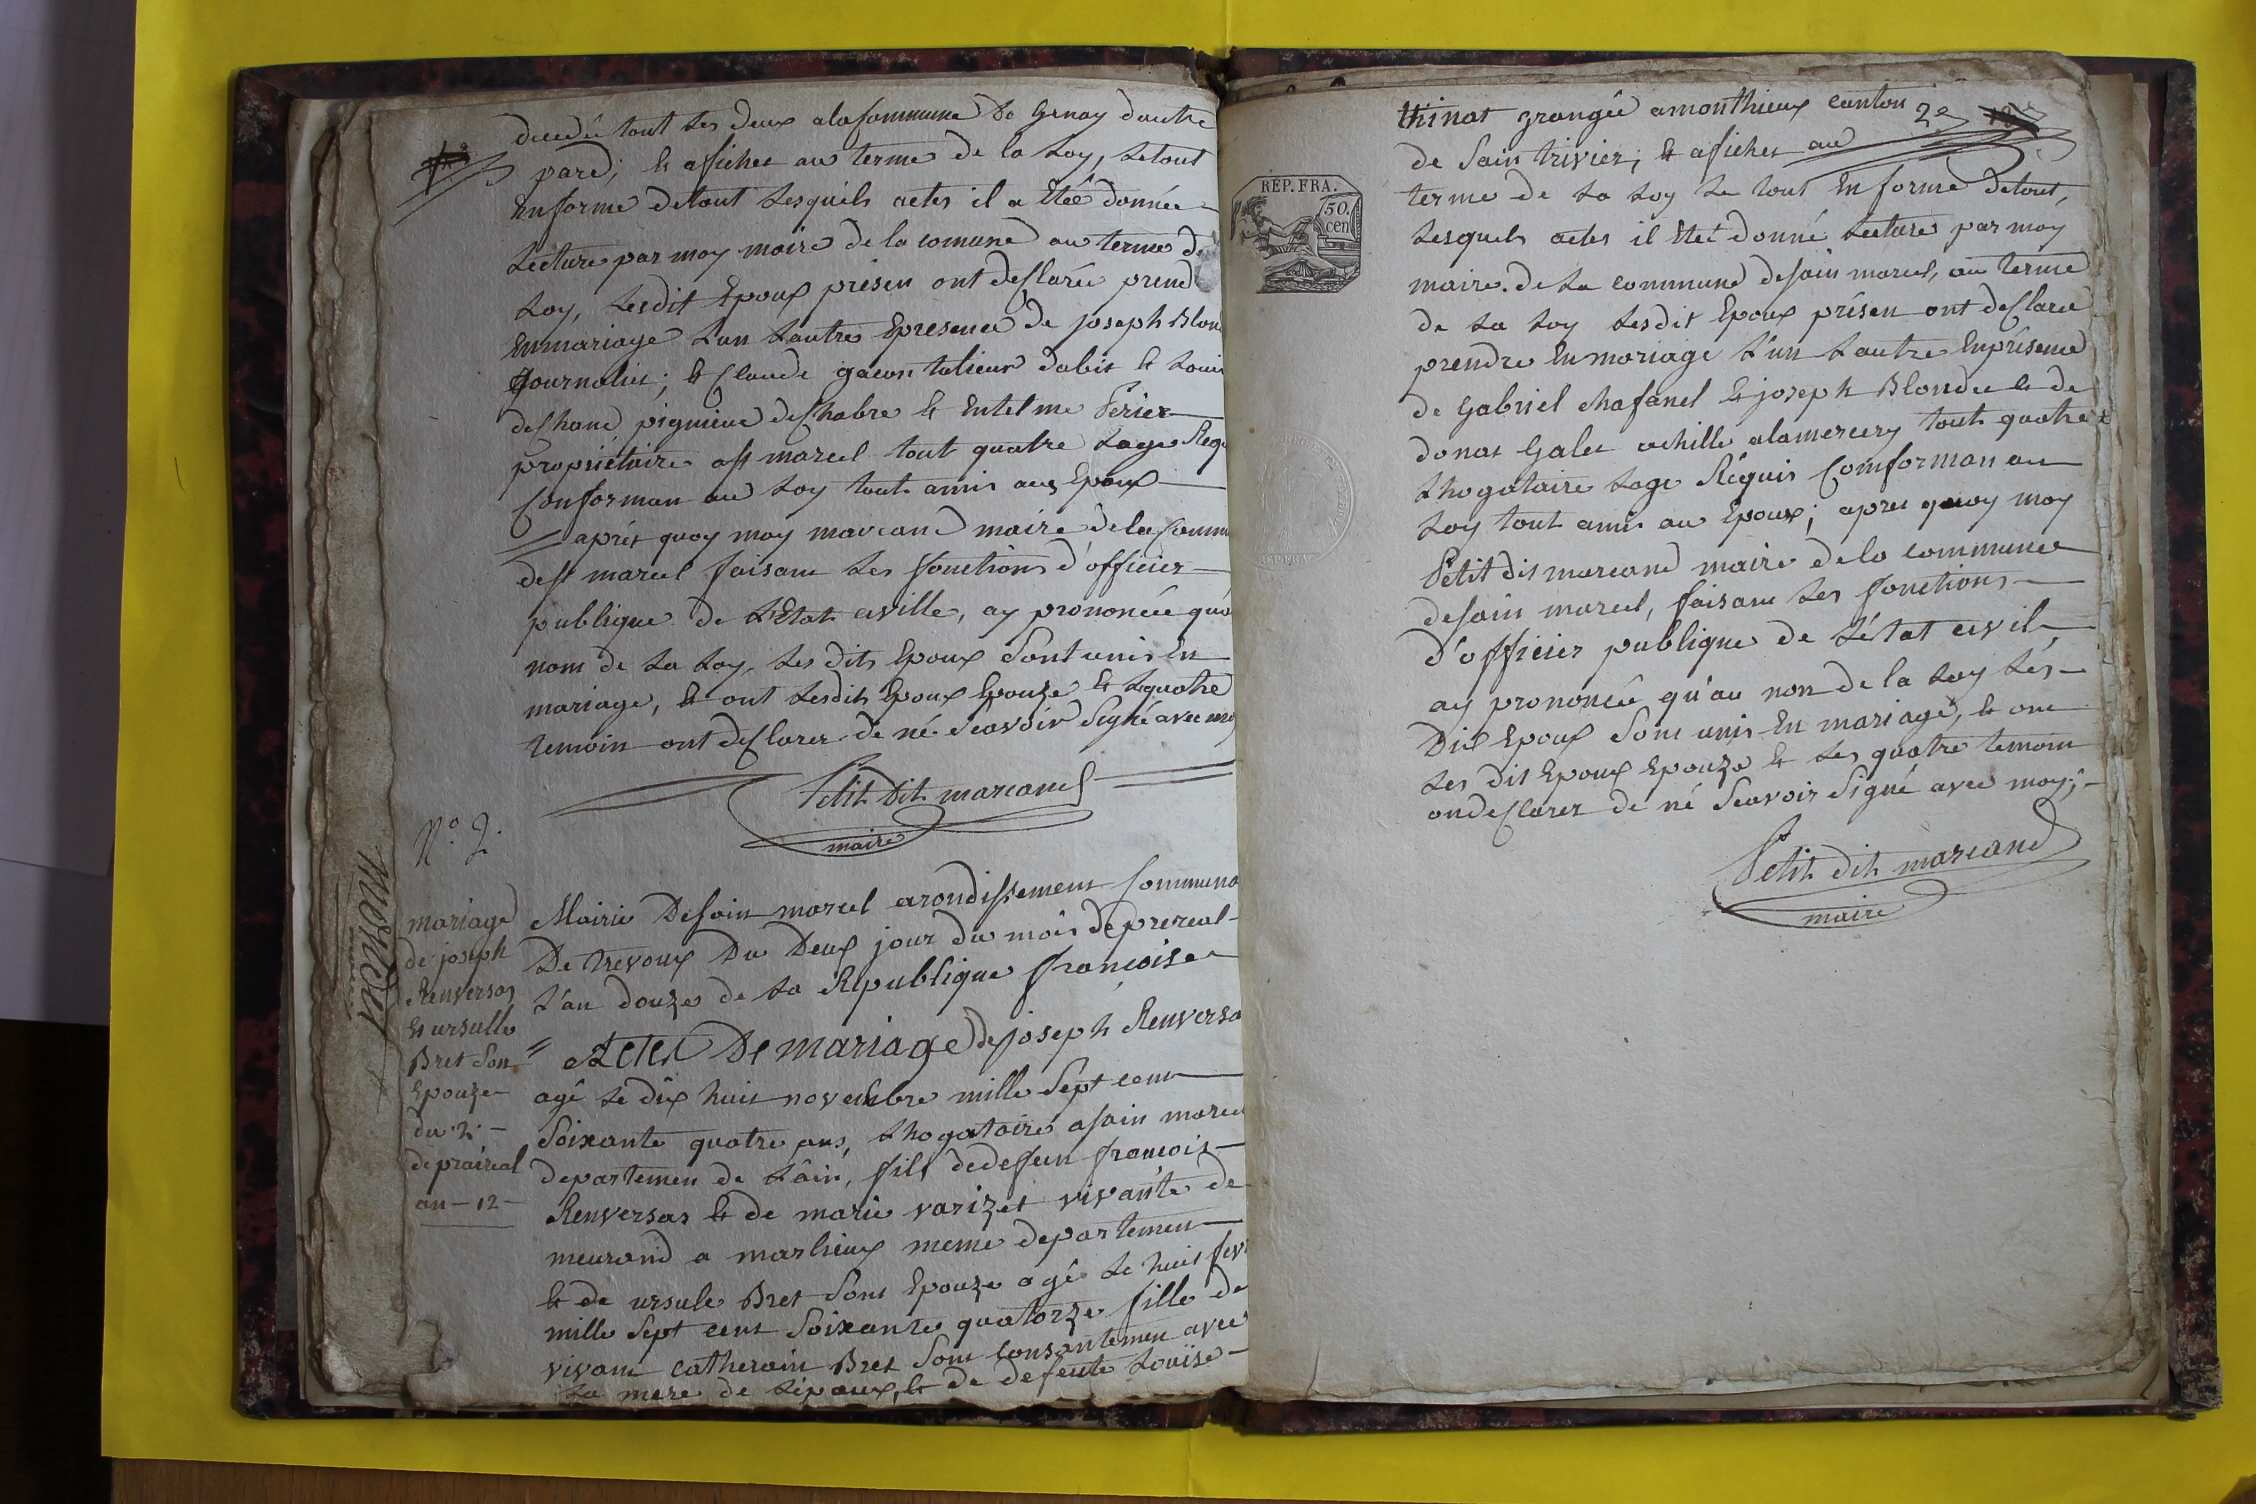 decedé tout les deux alacommune de Genay dautre
pard; et afichee au terme de la Loy, Letout
enforme detout Lesquels actes il a étéé donnée
Lecture par moy maire de la comune au terme de
Loy, Lesdit Epoux présen ont desclarée prend
Enmariage Lun Lautre Epresence de joseph Blon
Journalié; et Claude gacon talieur dabit et Loui
deschand pignieur deschabre et Entelme Périer
propriétaire ast marcel tout quatre Lage Requ
Conforman au Loy tout amis aux Epoux
aprés quoy moy marcand maire de la Commu
dest marcel faisant Les fonctions d'officier
publique de LEtat civille, ay prononcée qu'au
nom de La Loy, Les dits Epoux Sont unis En
mariage, et ont Lesdits Epoux Epouze et Lequatre
temoin ont desclarer de né Scavoir Signé avec moy
Petit Dit marcand
maire
N.o 2.
mariage
de joseph
Renversas
et ursulle
Bret Son
Epouze
du 2
de prairéal
an - 12 -
Mairie Desain marcel arondissement Communa
De trevoux Du Deux jour du mois de prereal
L'an douze de La République françoise
Actes De mariage de joseph Renversa
agé Le dix huit novembre mille Sept cent
Soixante quatre ans, Lhogataire asain marcel
departemen de Lâin, fils dedefeun françois
Renversas et de marie varizet vivante de
meurand a marlieux meme departemen
et de ursule Bret Sont Epouze agé Le huit fev
mille Sept cent Soixante quatorze fille de
vivant catherain Bret Sont consantemen avec
La mere de Lépoux, et de defeute Louïse
thinat grangée amonthieux canton 2e
de Sain trivier; et aficher au
terme de La Loy Le tout En forme detout,
Lesquels actes il étéé donné Lecture par moy
maire de La commune desain marcel, au terme
de La Loy Lesdit Epoux présen ont desclaré
prendre En mariage L'un Lautre En présence
de Gabriel Chafanel et joseph Blondee et de
donat Galet achille alamercery tout quatre
Lhogataire Lage Réquis Comforman au
Loy tout amis au Epoux; apres quoy moy
Petit dit marcand maire de la commune
desain marcel, faisant Les fonctions
d'officier publique de L'état civil,
ay prononcée qu'au nom de la Loy Lés
Dit Epoux Sont unis En mariage, et ont
Les dit Epoux Epouze et Les quatre temoin
ondesclarer de né Scavoir Signé avec moy;
Petit dit marcand
maire
REP. FRA.
50.
cen